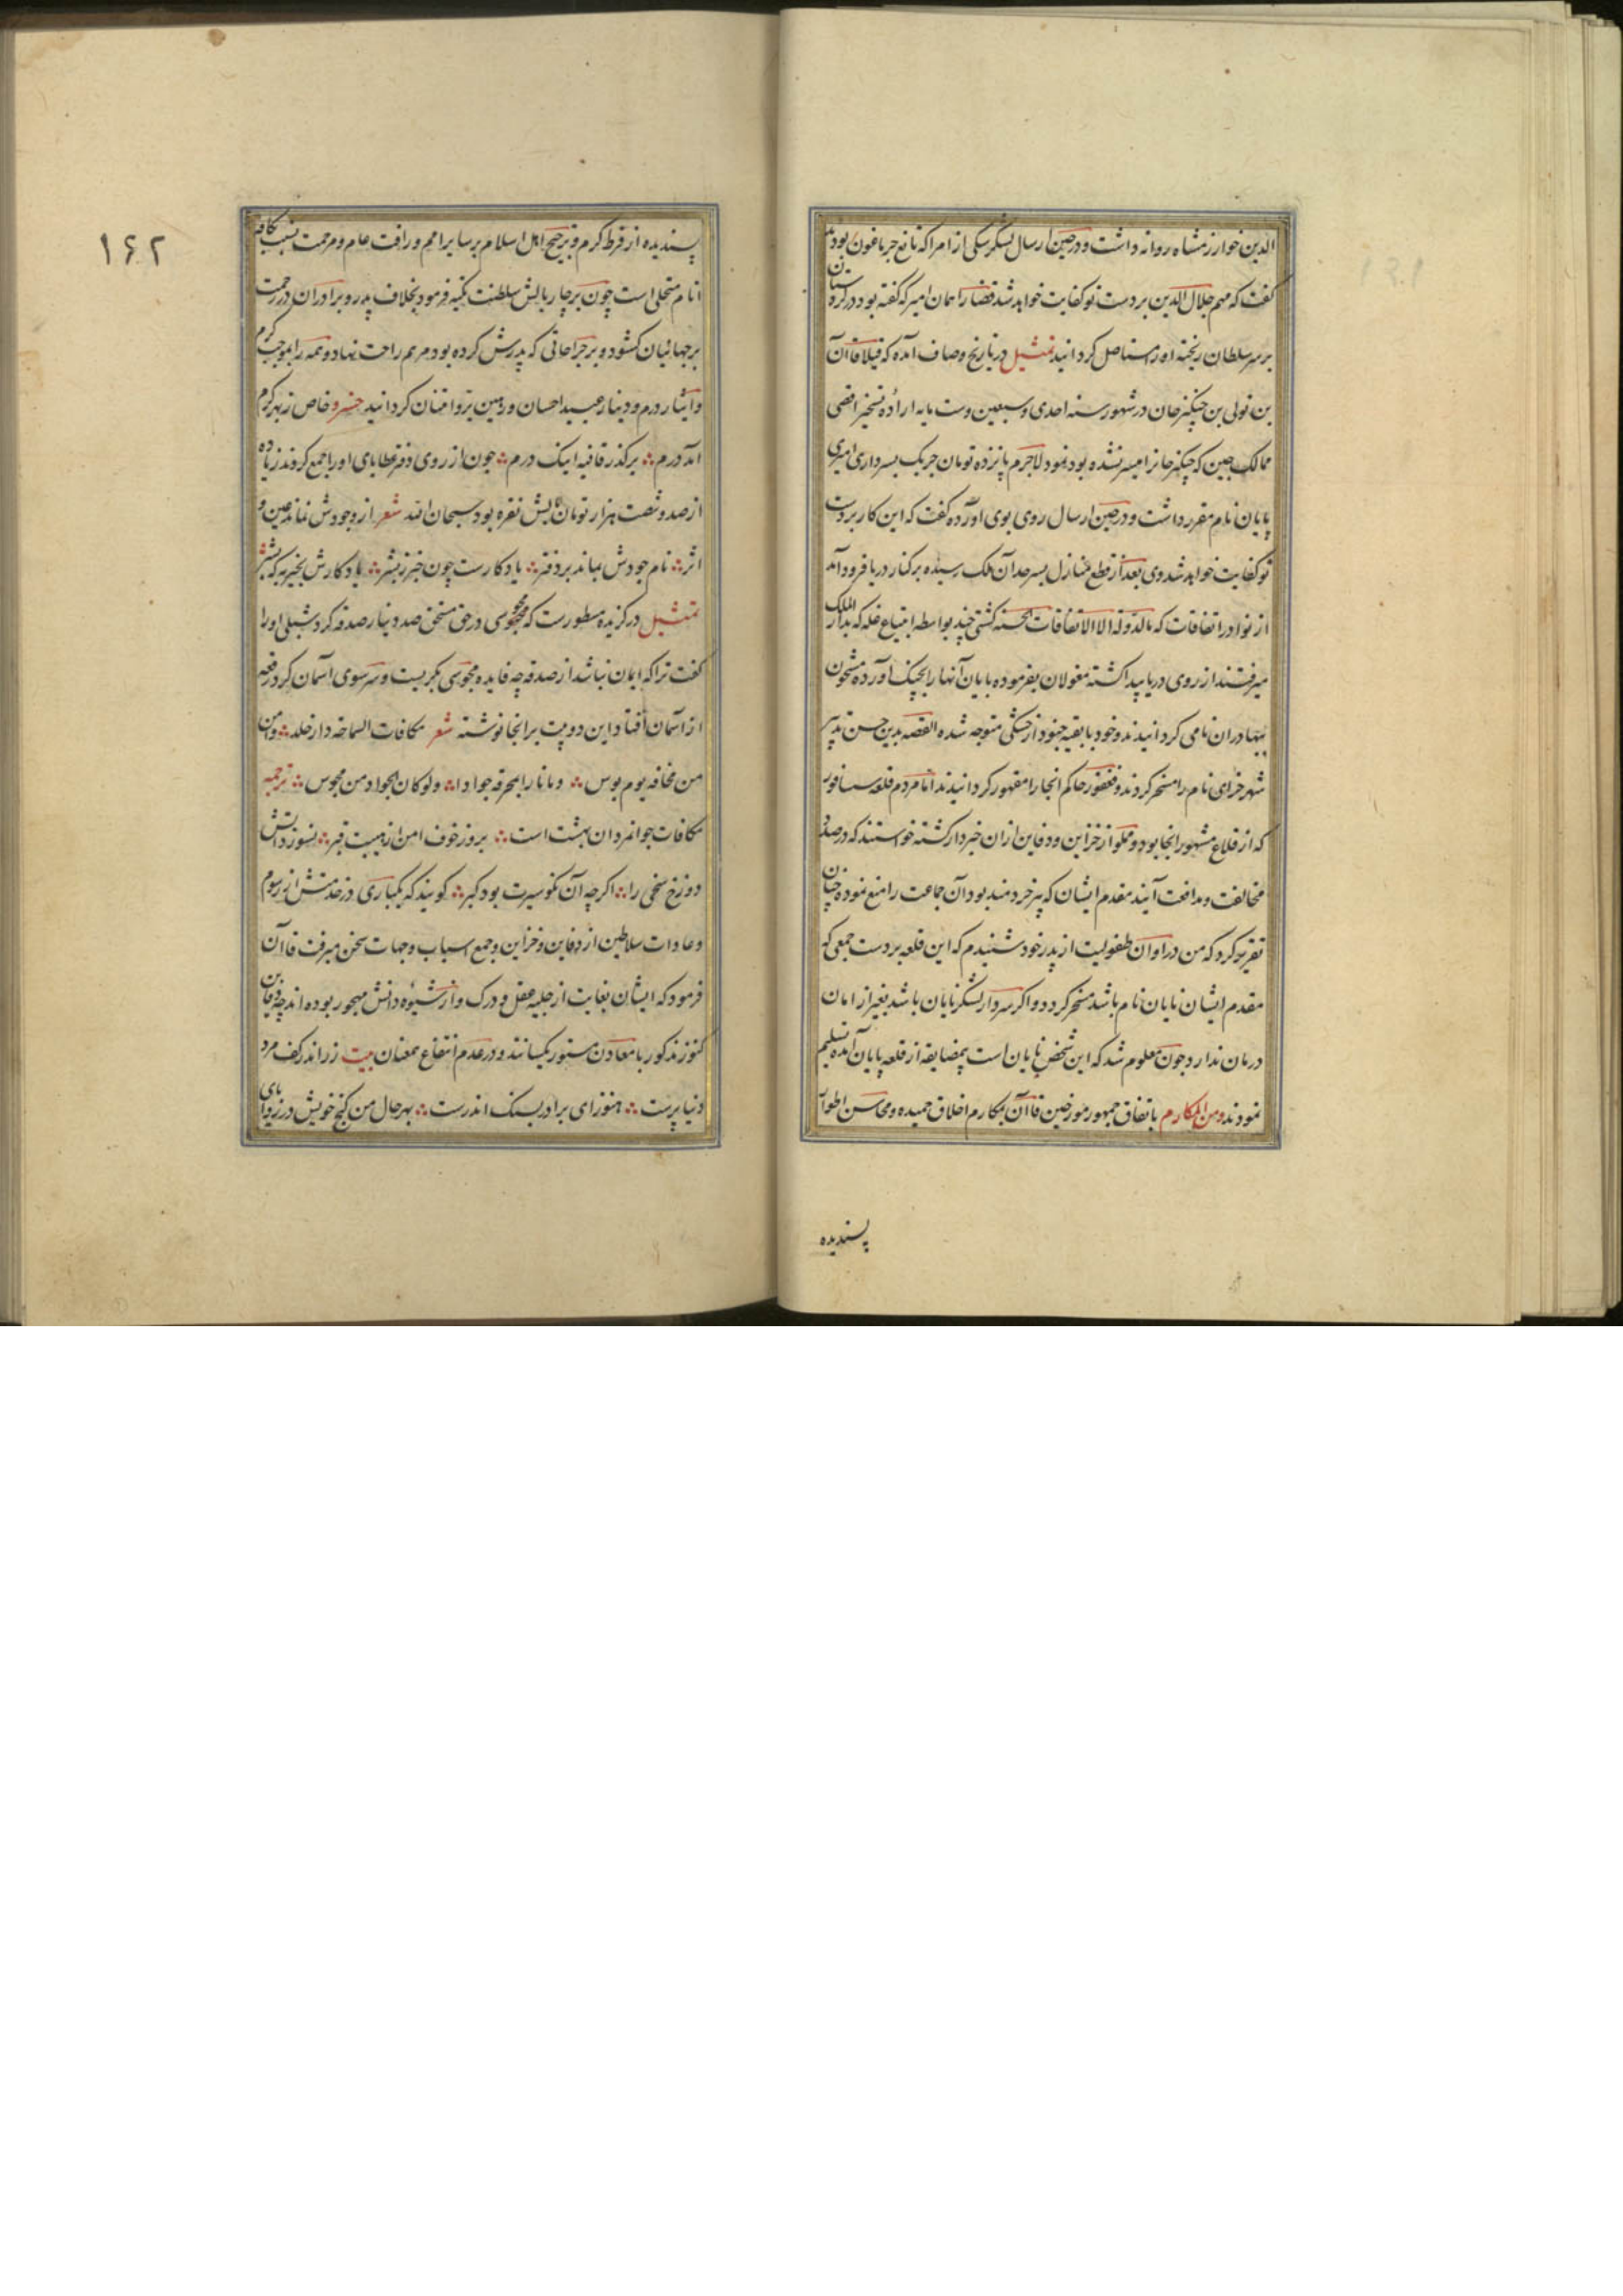 الدین خوارزمشاه روانه داشت و در حین ارسال لشکر یکی از امرا که تابع جرماغون بود
گفت که مهم جلال الدین بر دست تو کفایت خواهد شد قضا را همان امیر که گفته بود در کردستان
بر سر سلطان ریخته او را مستاصل کردانید تمثیل در تاریخ وصاف آمده که قبلا قاآن
بن تولی بن چنکیز خان در شهور سنه احدی و سبعین و ست مایه اراده تسخیر اقصی
ممالک چین که چنکیز خانرا میسر نشده بود نمود لاجرم پانزده تومان چریک بسرداری امیری
بایان نام مقرر داشت و در حین ارسال روی بوی آورده گفت که این کار بر دست
تو کفایت خواهد شد وی بعد از قطع منازل بسرحد آن ملک رسیده بر کنار دریا فرود آمد
از نوادر اتفاقات که مالدوله الا الاتفاقات الحسنه کشتی چند بواسطه ابتیاع غله که بدار الملک
میرفتند از روی دریا پیدا کشته مغولان بفرموده بایان آنها را بچنک آورده مشحون
ببهادران نامی کردانیدند و خود با بقیه جنود از خشکی متوجه شده القصه بدین حسن تدبیر
شهر خزای نام را مسخر کردند و فغفور حاکم انجا را مقهور کردانیدند اما مردم قلعه سیانفور
که از قلاع مشهور انجا بود و مملو از خزاین و دفاین ازان خبردار کشته خواستند که در صدد
مخالفت و مدافعت آیند مقدم ایشان که پیر خردمند بود آن جماعت را منع نموده چنان
تقریر کرد که من در اوان طفولیت از پدر خود شنیدم که این قلعه بر دست جمعی که
مقدم ایشان بایان نام باشد مسخر کردد و اکر سردار لشکر بایان باشد بغیر از امان
درمان ندارد چون معلوم شد که این شخص بایان است بیمضایقه از قلعه پایان آمده تسلیم
نمودند و من المکارم باتفاق جمهور مورخین قاآن بمکارم اخلاق حمیده و محاسن اطوار
پسندیده
۱۶۲
پسندیده از فرط کرم و ترجیح اهل اسلام بر سایر امم و رافت عام و مرحمت بنسبت کافه
انام متحلی است چون بر چار بالش سلطنت تکیه فرمود بخلاف پدر و برادران در رحمت
بر جهانیان کشود و بر جراحاتی که پدرش کرده بود مرهم راحت نهاد و همه را بموجب کرم
وایثار درم و دینار عبید احسان و رهین بر و امتنان کردانید خسرو خاص ز بهر کرم
آمد درم ∴ بر کذر قافیه اینک درم ∴ چون از روی دفتر عطایای او را جمع کردند زیاده
از صد و شصت هزار تومان بالش نقره بود سبحان الله شعر از وجودش نماند عین و
اثر ∴ نام جودش بماند بر دفتر ∴ یادکارست چون خبر ز بشر ∴ یادکارش بخیر به که بشر
تمثیل در کزیده مسطورست که مجوسی در حق مستحق صد دینار صدقه کرد شبلی او را
گفت ترا که ایمان نباشد از صدقه چه فایده مجوسی بکریست و سر سوی آسمان کرد رقعه
از آسمان افتاد این دو بیت بر انجا نوشته شعر مکافات السماحه دار خلد ∴ و امن
من مخافه یوم بوس ∴ وما نار بمحرقه جوادا ∴ ولو کان الجواد من مجوس ∴ ترجمه
مکافات جوانمردان بهشت است ∴ بروز خوف امن از هیبت قبر ∴ نسوزد آتش
دوزخ سخی را ∴ اکرچه آن نکو سیرت بود کبر ∴ کویند که یکباری در خدمتش از رسوم
و عادات سلاطین از دفاین و خزاین و جمع اسباب و جهات سخن میرفت قاآن
فرمود که ایشان بغایت از حلیه عقل و درک و از شیوه دانش مهجور بوده اند چه دفاین
کنوز مذکور با معادن مستور یکسانند و در عدم انتفاع همعنان بیت زر اندر کف مرد
دنیا پرست ∴ هنوز ای برادر بسنک اندرست ∴ بهر حال من کنج خویش در زوایای